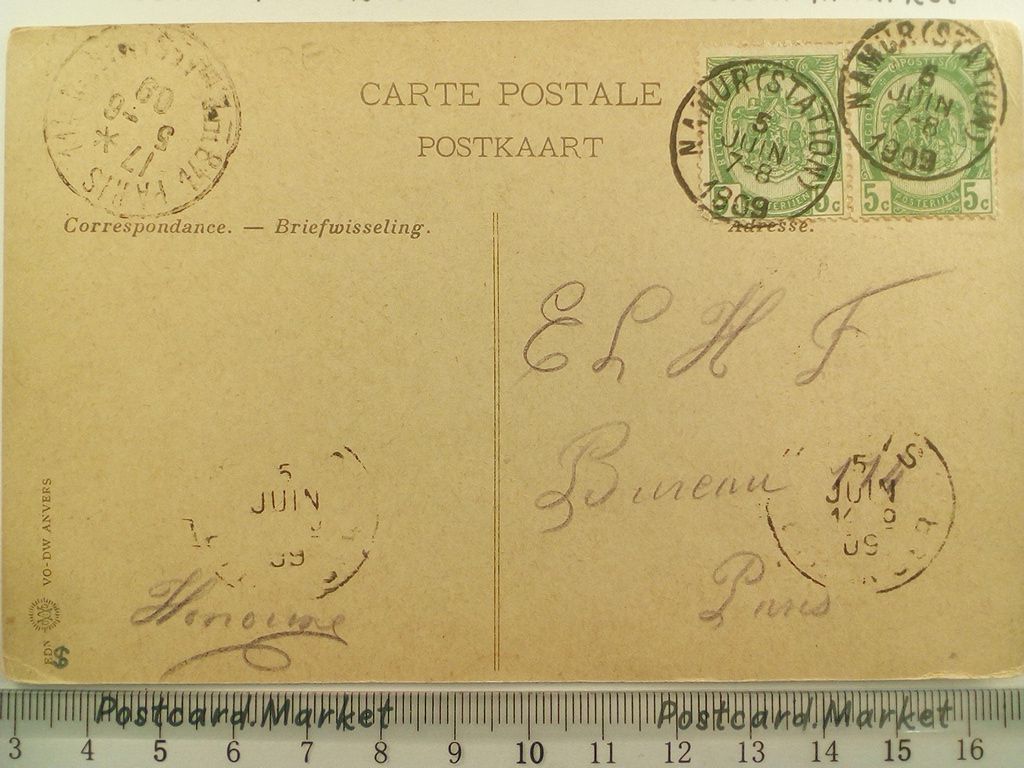 CARTE POSTALE
POSTKAART
Correspondance. — Briefwisseling.
Adresse.
NAMUR (STATION)
5
JUIN
7-8
1909
5c
NAMUR (STATION)
5
JUIN
7-8
1909
POSTES
5c 5c
POSTERIJEN
PARIS
17
5
09
E L H F
Bureau 114
Paris
5
JUIN
09
5
JUIN
09
Honorine
EDN VO-DW ANVERS
69
Postcard.Market Postcard.Market
3 4 5 6 7 8 9 10 11 12 13 14 15 16